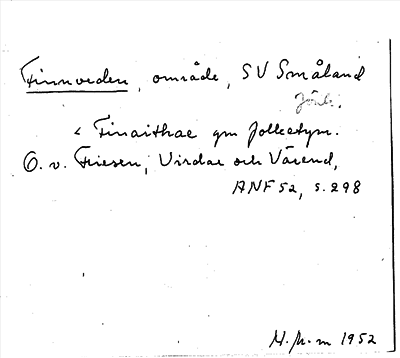 Finnveden, område, SV Småland
Jönk.
< Finaithae gm folketym.
O. v. Friesen, Virdar och Värend,
ANF 52, s. 298
M. M-m 1952